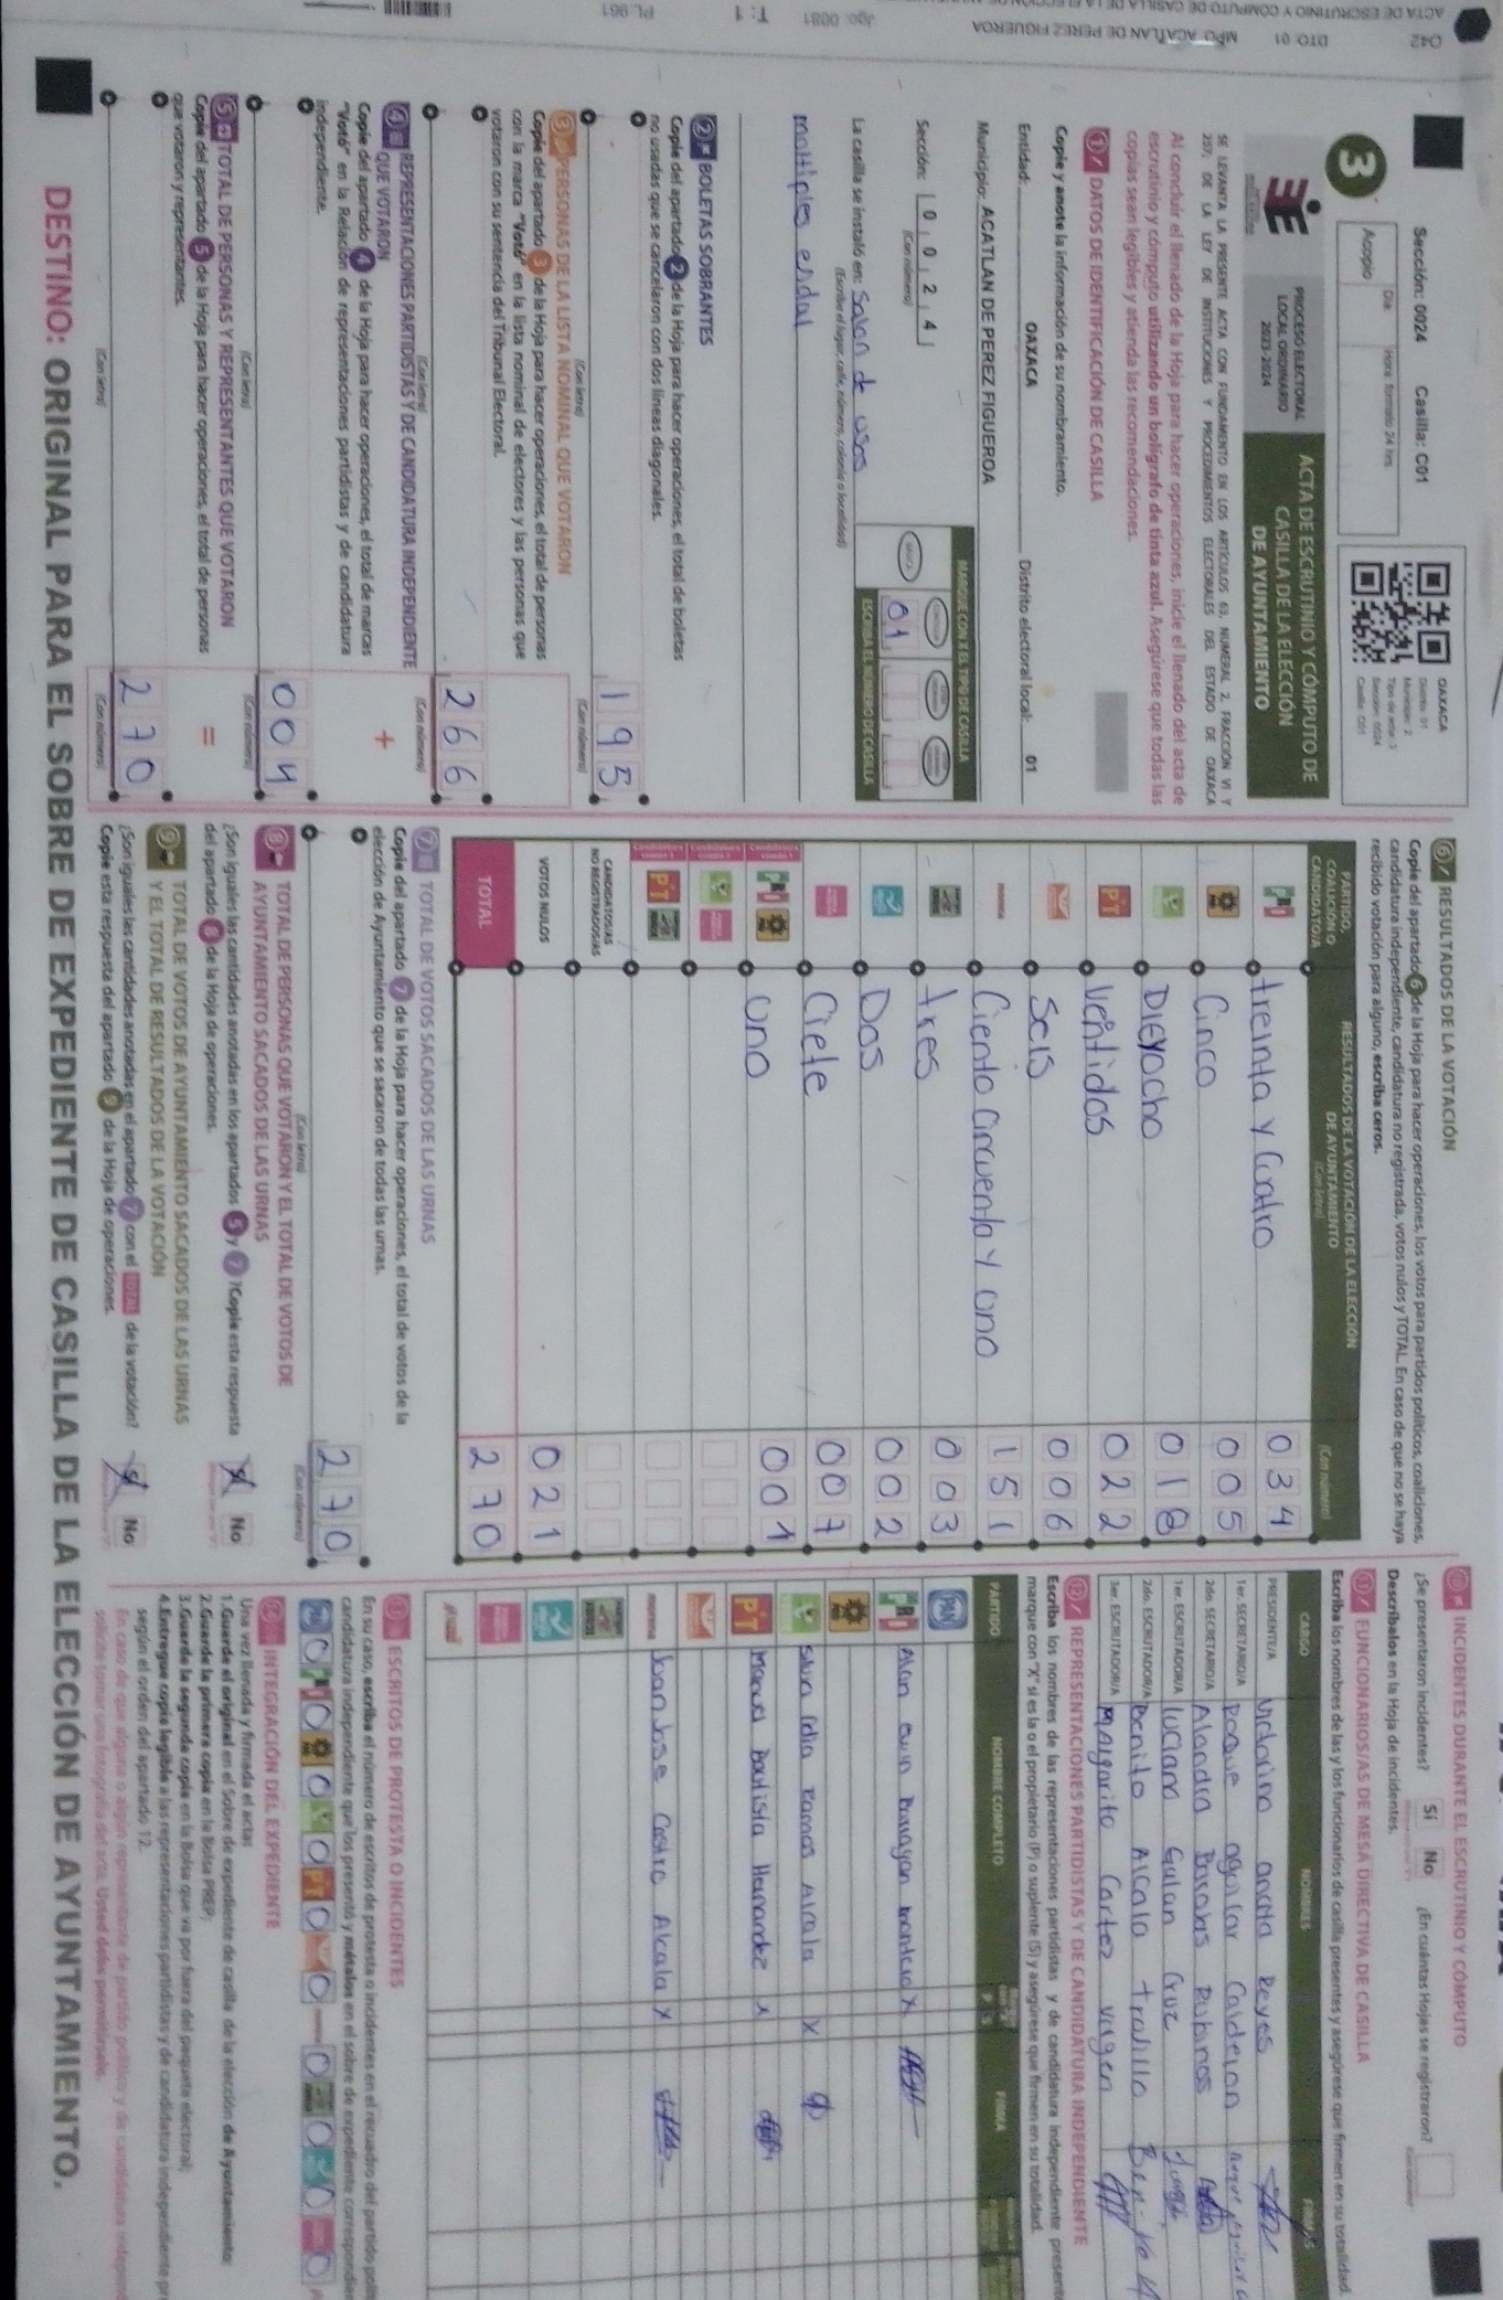 ACTA DE ESCRUTINIO Y CÓMPUTO DE CASILLA DE LA ELECCIÓN DE
042 DTO: 01 MPO: ACATLAN DE PEREZ FIGUEROA Jgo: 0081 T: 1 PL: 961
Sección: 0024 Casilla: C01
3
Acopio
Día
Hora formato 24 hrs
OAXACA
Distrito: 01
Municipio: 2
Sección: 0024
Casilla: C01
PROCESO ELECTORAL
LOCAL ORDINARIO
2023-2024
ACTA DE ESCRUTINIO Y CÓMPUTO DE
CASILLA DE LA ELECCIÓN
DE AYUNTAMIENTO
SE LEVANTA LA PRESENTE ACTA CON FUNDAMENTO EN LOS ARTÍCULOS 63, NUMERAL 2, FRACCIÓN VI Y
257, DE LA LEY DE INSTITUCIONES Y PROCEDIMIENTOS ELECTORALES DEL ESTADO DE OAXACA
Al concluir el llenado de la Hoja para hacer operaciones, inicie el llenado del acta de
escrutinio y cómputo utilizando un bolígrafo de tinta azul. Asegúrese que todas las
copias sean legibles y atienda las recomendaciones.
1 DATOS DE IDENTIFICACIÓN DE CASILLA
Copie y anote la información de su nombramiento.
Entidad: OAXACA Distrito electoral local: 01
Municipio: ACATLAN DE PEREZ FIGUEROA
Sección: 0 0 2 4
(Con número)
MARQUE CON X EL TIPO DE CASILLA
01
ESCRIBA EL NÚMERO DE CASILLA
La casilla se instaló en: Salon de usos
(Escriba el lugar, calle, número, colonia o localidad)
2 BOLETAS SOBRANTES
Copie del apartado 2 de la Hoja para hacer operaciones, el total de boletas
no usadas que se cancelaron con dos líneas diagonales.
195
(Con letra) (Con número)
3 PERSONAS DE LA LISTA NOMINAL QUE VOTARON
Copie del apartado 3 de la Hoja para hacer operaciones, el total de personas
con la marca "Votó" en la lista nominal de electores y las personas que
votaron con su sentencia del Tribunal Electoral.
266
(Con letra) (Con número)
4 REPRESENTACIONES PARTIDISTAS Y DE CANDIDATURA INDEPENDIENTE
QUE VOTARON
Copie del apartado 4 de la Hoja para hacer operaciones, el total de marcas
"Votó" en la Relación de representaciones partidistas y de candidatura
independiente.
+
004
(Con letra) (Con número)
5 TOTAL DE PERSONAS Y REPRESENTANTES QUE VOTARON
Copie del apartado 5 de la Hoja para hacer operaciones, el total de personas
que votaron y representantes.
=
270
(Con letra) (Con número)
6 RESULTADOS DE LA VOTACIÓN
Copie del apartado 6 de la Hoja para hacer operaciones, los votos para partidos políticos, coaliciones,
candidatura independiente, candidatura no registrada, votos nulos y TOTAL. En caso de que no se haya
recibido votación para alguno, escriba ceros.
PARTIDO,
COALICIÓN O
CANDIDATO/A
RESULTADOS DE LA VOTACIÓN DE LA ELECCIÓN
DE AYUNTAMIENTO
(Con letra)
(Con número)
PRI treinta y Cuatro 034
Cinco 005
Dieyocho 018
PT Ventidos 022
Seis 006
morena Ciento Cincuenta y uno 151
tres 003
Dos 002
Ciete 007
PRI uno 001
PT
CANDIDATOS/AS
NO REGISTRADOS/AS
VOTOS NULOS 021
TOTAL 270
7 TOTAL DE VOTOS SACADOS DE LAS URNAS
Copie del apartado 7 de la Hoja para hacer operaciones, el total de votos de la
elección de Ayuntamiento que se sacaron de todas las urnas.
270
(Con letra) (Con número)
8 TOTAL DE PERSONAS QUE VOTARON Y EL TOTAL DE VOTOS DE
AYUNTAMIENTO SACADOS DE LAS URNAS
¿Son iguales las cantidades anotadas en los apartados 5 y 7? Copie esta respuesta
del apartado 8 de la Hoja de operaciones.
No
9 TOTAL DE VOTOS DE AYUNTAMIENTO SACADOS DE LAS URNAS
Y EL TOTAL DE RESULTADOS DE LA VOTACIÓN
¿Son iguales las cantidades anotadas en el apartado 7 con el TOTAL de la votación?
Copie esta respuesta del apartado 9 de la Hoja de operaciones.
No
INCIDENTES DURANTE EL ESCRUTINIO Y CÓMPUTO
¿Se presentaron incidentes? Sí No ¿En cuántas Hojas se registraron?
Descríbalos en la Hoja de incidentes.
FUNCIONARIOS/AS DE MESA DIRECTIVA DE CASILLA
Escriba los nombres de las y los funcionarios de casilla presentes y asegúrese que firmen en su totalidad.
CARGO NOMBRES FIRMAS
PRESIDENTE/A Victorino Reyes
1er. SECRETARIO/A Roque aguilar Calderon
2do. SECRETARIO/A
1er. ESCRUTADOR/A Luciana Galan Cruz
2do. ESCRUTADOR/A Benito Alcala trujillo
3er. ESCRUTADOR/A Margarito Cortez virgen
12 REPRESENTACIONES PARTIDISTAS Y DE CANDIDATURA INDEPENDIENTE
Escriba los nombres de las representaciones partidistas y de candidatura independiente
marque con "X" si es la o el propietario (P) o suplente (S) y asegúrese que firmen en su totalidad.
PARTIDO NOMBRE COMPLETO P S FIRMA
PAN
PRI Alan X
Ramos Alcala X
PT Manuel Bautista Hernandez X
morena Juan Jose Castro Alcala X
ESCRITOS DE PROTESTA O INCIDENTES
En su caso, escriba el número de escritos de protesta o incidentes en el recuadro del partido
candidatura independiente que los presentó y métalos en el sobre de expediente
PAN PRI PT
INTEGRACIÓN DEL EXPEDIENTE
Una vez llenada y firmada el acta:
1. Guarde el original en el Sobre de expediente de casilla de la elección de Ayuntamiento;
2. Guarde la primera copia en la Bolsa PREP;
3. Guarde la segunda copia en la Bolsa que va por fuera del paquete electoral;
4. Entregue copia legible a las representaciones partidistas y de candidatura independiente
según el orden del apartado 12.
DESTINO: ORIGINAL PARA EL SOBRE DE EXPEDIENTE DE CASILLA DE LA ELECCIÓN DE AYUNTAMIENTO.